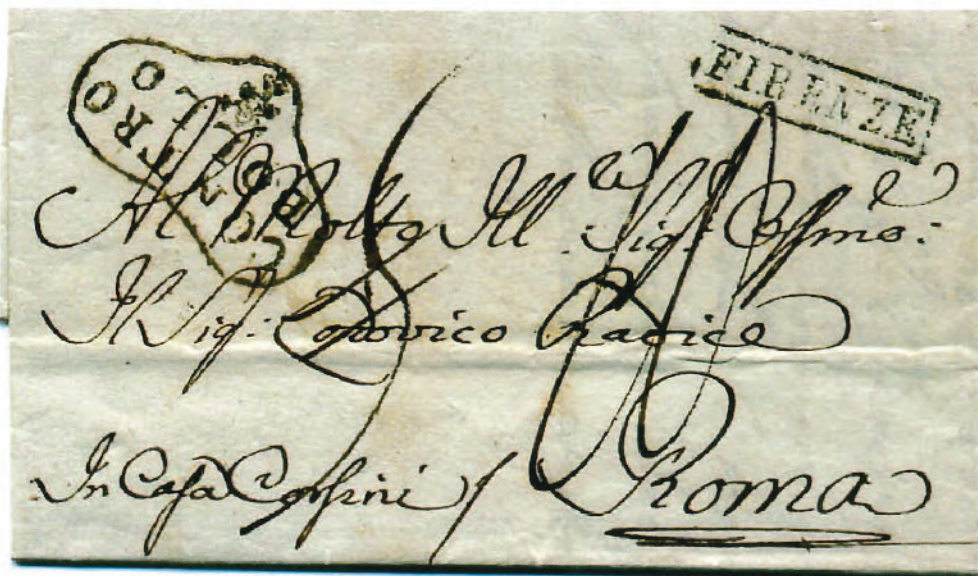 FIRENZE
Al Molto Ill: Sig: Ossmo:
Il Sig: Lodovico Radice
In Casa Corsini
Roma